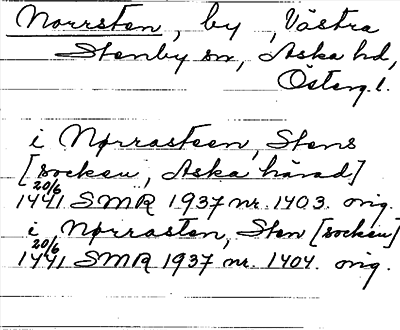 Norrsten, by, Västra
Stenby sn, Aska hd,
Österg. l.
i Nørrasteen, Stens
[socken, Aska härad]
20/6
1441 SMR 1937 nr. 1403. orig.
i Nørrasten, Sten [socken]
20/6
1441 SMR 1937 nr. 1404. orig.